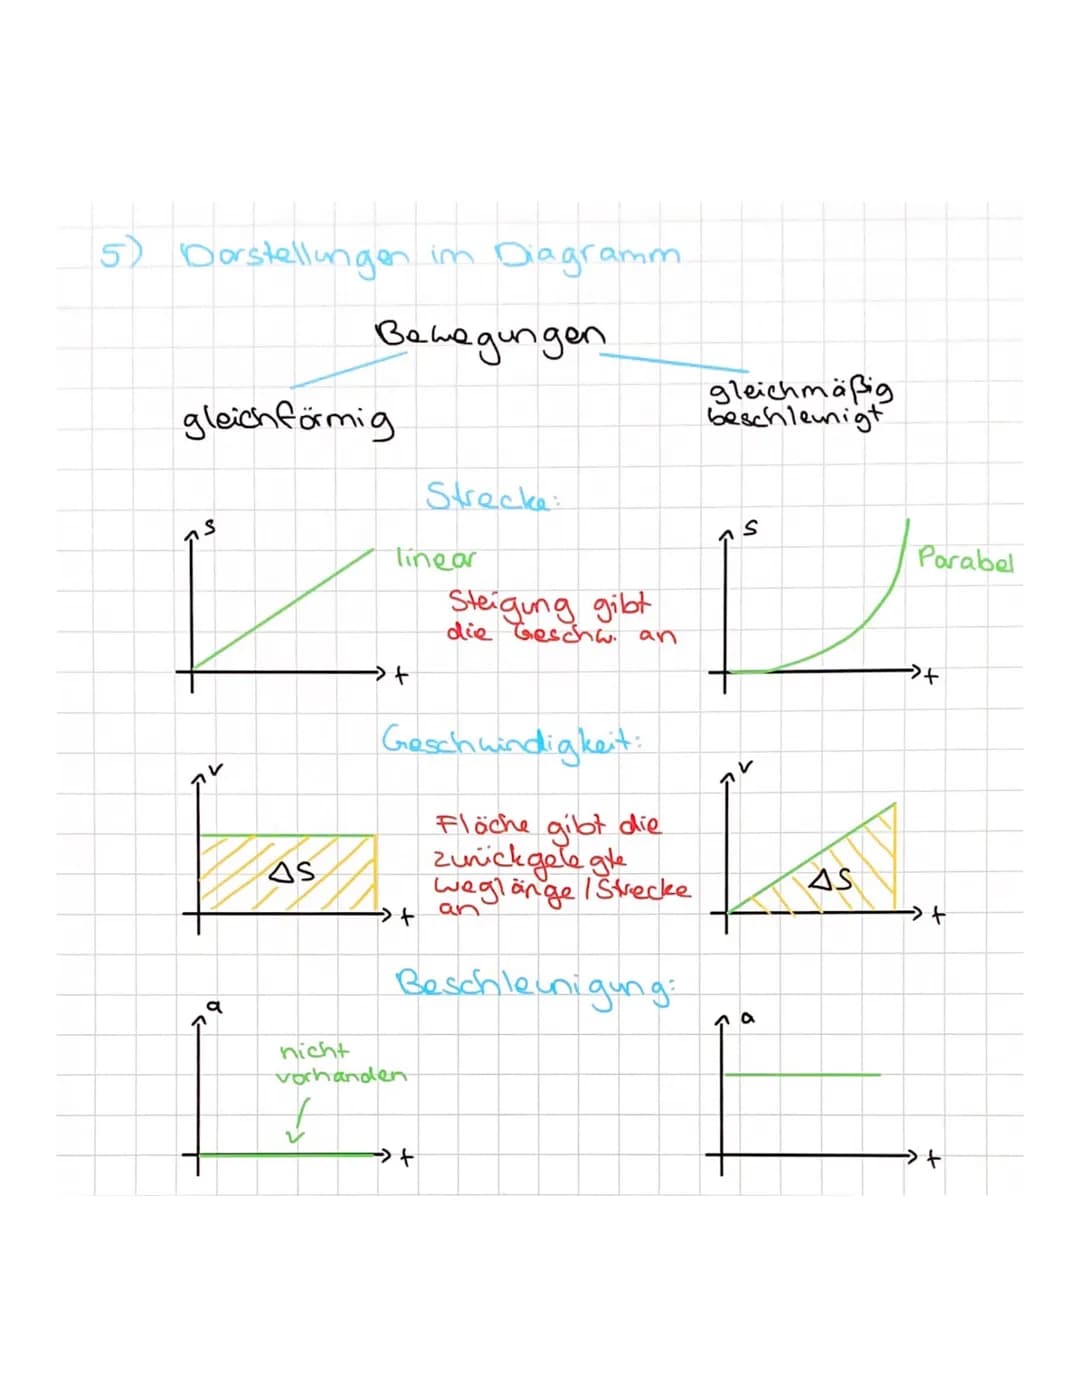 5) Darstellungen im Diagramm
Bewegungen
gleichförmig
gleichmäßig
beschleunigt
Strecke:
s
linear
Steigung gibt
die Geschw. an
t
s
Parabel
t
Geschwindigkeit:
v
ΔS
Fläche gibt die
zurückgelegte
weglänge / Strecke
an
t
v
ΔS
t
Beschleunigung:
a
nicht
vorhanden
t
a
t